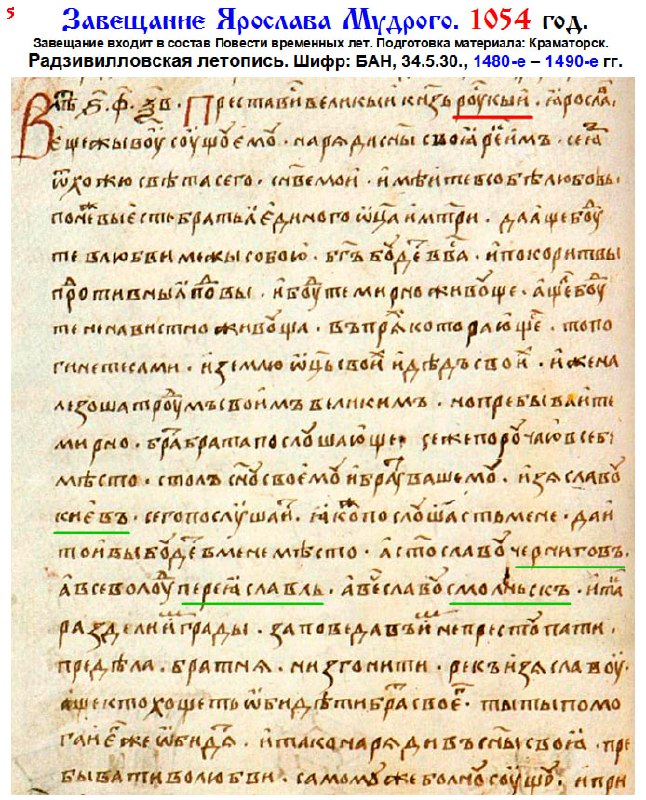 5
Завещание Ярослава Мудрого. 1054 год.
Завещание входит в состав Повести временных лет. Подготовка материала: Краматорск.
Радзивилловская летопись. Шифр: БАН, 34.5.30., 1480-е – 1490-е гг.
В лѣ҃ ҂ѕ҃ · ф҃ · ѯ҃в · Преставиⷭ великыи кнзь роускыи · ꙗросла,
Еще жывоу соущоу емоу · наряди сны своꙗ рекⷪ҇ имъ · се аⷥ
ѿхожю свѣта сего · сн҃ве мои · имѣите в собѣ любовь ·
понеⷤ вы есте братьꙗ единого ѡц҃а и мт҃ри · да аще боуⷣ
те в любви межы собою · бг҃ъ боудеⷮ в ваⷭ · и покорить вы
противныꙗ поⷣ вы · и боуⷣте мирно живоуще · аще боуⷣ
те ненавистно живоуща · въ пряⷯ которающе · то по
гинете сами · и землю ѡц҃ь своиⷯ и дѣдъ своиⷯ · иже на
лезоша троуⷣмъ своимъ великимъ · но пребываите
мирно · браⷮ брата послоушающе · се же пороучаю в себе
мѣсто · столъ сн҃оу своемоу и братоу вашемоу · изяславоу
киевъ · сего послоушаиⷮ · ꙗкоⷤ послоушасть мене · да и
тои вы боудеⷮ в мене мѣсто · а ст҃ославоу черниговъ.
а всеволоⷣу переꙗславль · а вꙗчеславоу смолньскъ · и таⷦ
раздели иⷨ грады · заповедавъ иⷨ не престоупати ·
предѣла · братня · ни згонити · рекъ изяславоу ·
аще кто хощеть ѡбидѣти браⷮа своеⷢ · ты ты помо
гаи егоже ѡбидяⷮ · и тако наряди въ сн҃ы своꙗ · пре
бывати во любви · самомоу же болноу соущоу · и при